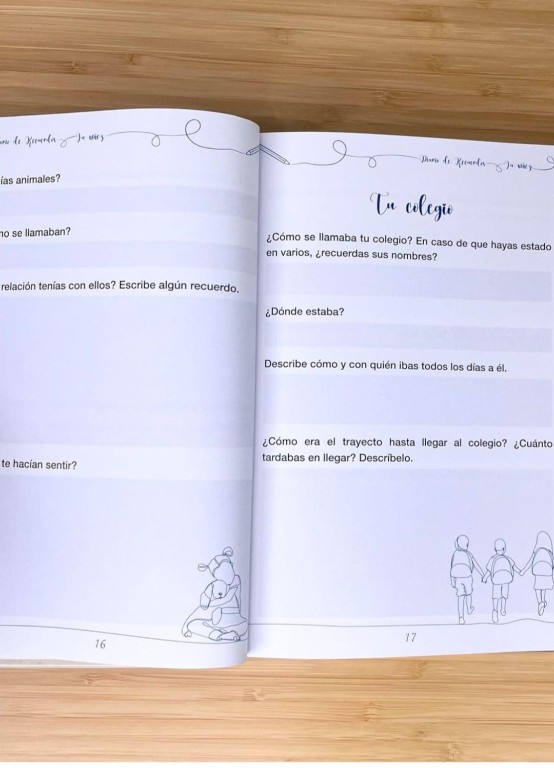 de Recuerdos Tu niñez
ías animales?
mo se llamaban?
relación tenías con ellos? Escribe algún recuerdo.
te hacían sentir?
16
Diario de Recuerdos Tu niñez
Tu colegio
¿Cómo se llamaba tu colegio? En caso de que hayas estado
en varios, ¿recuerdas sus nombres?
¿Dónde estaba?
Describe cómo y con quién ibas todos los días a él.
¿Cómo era el trayecto hasta llegar al colegio? ¿Cuánto
tardabas en llegar? Descríbelo.
17